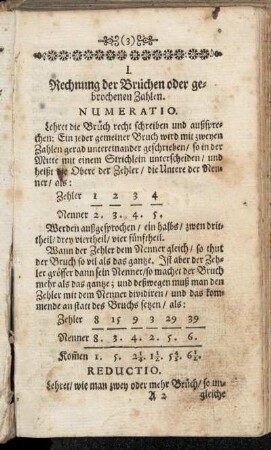 (3)
I.
Rechnung der Brüchen oder ge-
brochenen Zahlen.
NUMERATIO.
Lehret die Brüch recht schreiben und außspre-
chen: Ein jeder gemeiner Bruch wird mit zweyen
Zahlen gerad untereinander geschrieben/ so in der
Mitte mit einem Strichlein unterscheiden/ und
heißt die Obere der Zehler/ die Untere der Nen-
ner/ als:
Zehler 1 2 3 4
Nenner 2. 3. 4. 5.
Werden außgesprochen/ ein halbs/ zwey drit-
theil/ drey viertheil/ vier fünfftheil.
Wann der Zehler dem Nenner gleich/ so thut
der Bruch so vil als das gantze. Ist aber der Zeh-
ler grösser dann sein Nenner/ so machet der Bruch
mehr als das gantze; und deßwegen muß man den
Zehler mit dem Nenner dividiren/ und das kom-
mende an statt des Bruchs setzen/ als:
Zehler 8 15 9 3 29 39
Nenner 8. 3. 4. 2. 5. 6.
Kom̃en 1. 5. 2¼. 1½. 5⅘. 6½.
REDUCTIO.
Lehret/ wie man zwey oder mehr Brüch/ so un-
A 2 gleiche